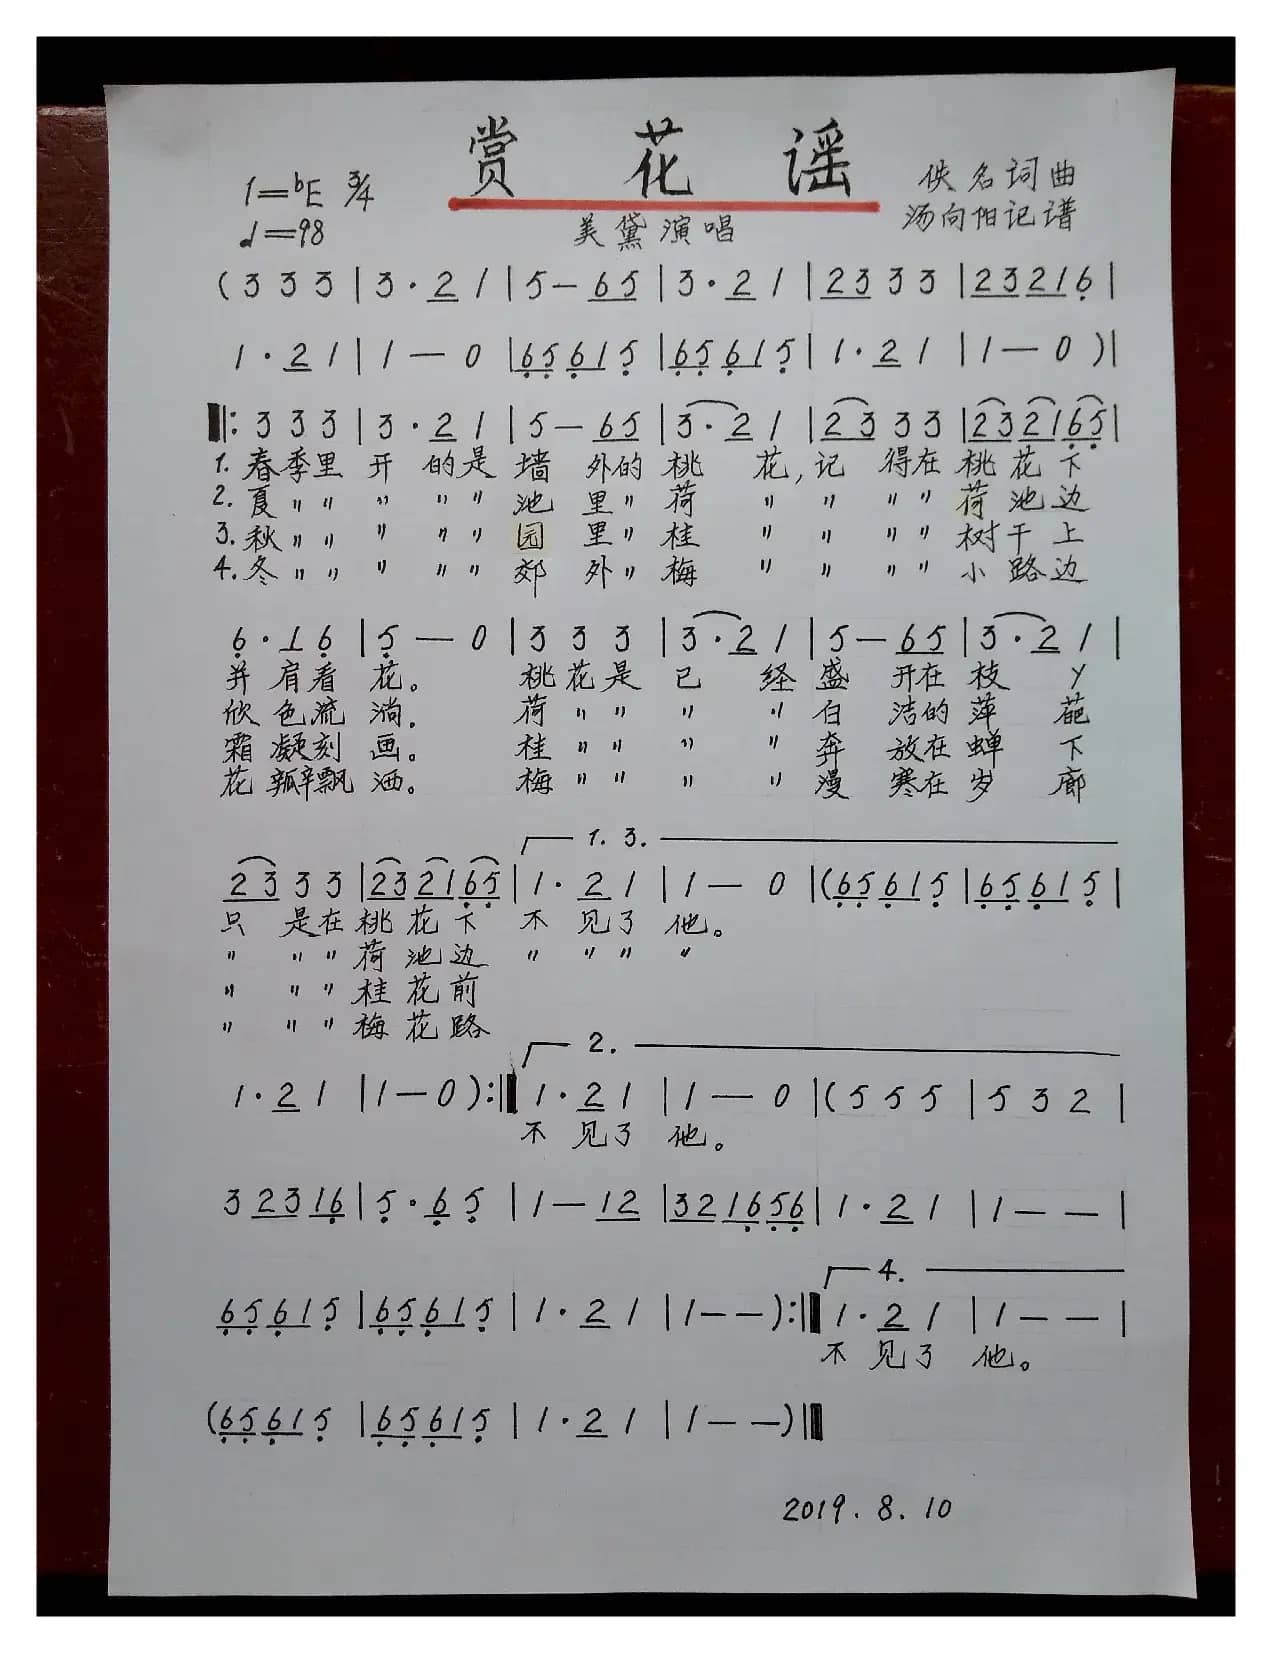 赏花谣
1=ᵇE 3/4
♩=98
佚名词曲
汤向阳记谱
美黛演唱
(3 3 3 | 3·2 1 | 5 — 65 | 3·2 1 | 23 3 3 | 23216 |
1·2 1 | 1 — 0 | 65615 | 65615 | 1·2 1 | 1 — 0 )|
‖: 3 3 3 | 3·2 1 | 5 — 65 | 3·2 1 | 23 3 3 | 232165 |
1. 春季里 开 的是 墙 外的 桃 花, 记 得在 桃花下
2. 夏〃〃 〃 〃〃 池 里〃 荷 〃 〃 〃〃 荷池边
3. 秋〃〃 〃 〃〃 园 里〃 桂 〃 〃 〃〃 树干上
4. 冬〃〃 〃 〃〃 郊 外〃 梅 〃 〃 〃〃 小路边
6·1 6 | 5 — 0 | 3 3 3 | 3·2 1 | 5 — 65 | 3·2 1 |
并肩看 花。 桃花是 已 经 盛 开在 枝 丫
欣色流 淌. 荷〃〃 〃 〃 白 洁的 萍 葩
霜凝刻 画。 桂〃〃 〃 〃 奔 放在 蝉 下
花瓣飘 洒。 梅〃〃 〃 〃 漫 寒在 岁 廊
1. 3.
23 3 3 | 232165 | 1·2 1 | 1 — 0 |(65615 | 65615 |
只 是在 桃花下 不 见了 他。
〃 〃〃 荷池边 〃 〃〃 〃
〃 〃〃 桂花前
〃 〃〃 梅花路
2.
1·2 1 | 1 — 0 ):‖ 1·2 1 | 1 — 0 |( 5 5 5 | 5 3 2 |
不 见了 他。
3 23 16 | 5·6 5 | 1 — 12 | 321656 | 1·2 1 | 1 — — |
4.
65615 | 65615 | 1·2 1 | 1 — — ):‖ 1·2 1 | 1 — — |
不 见了 他。
(65615 | 65615 | 1·2 1 | 1 — — )‖
2019.8.10